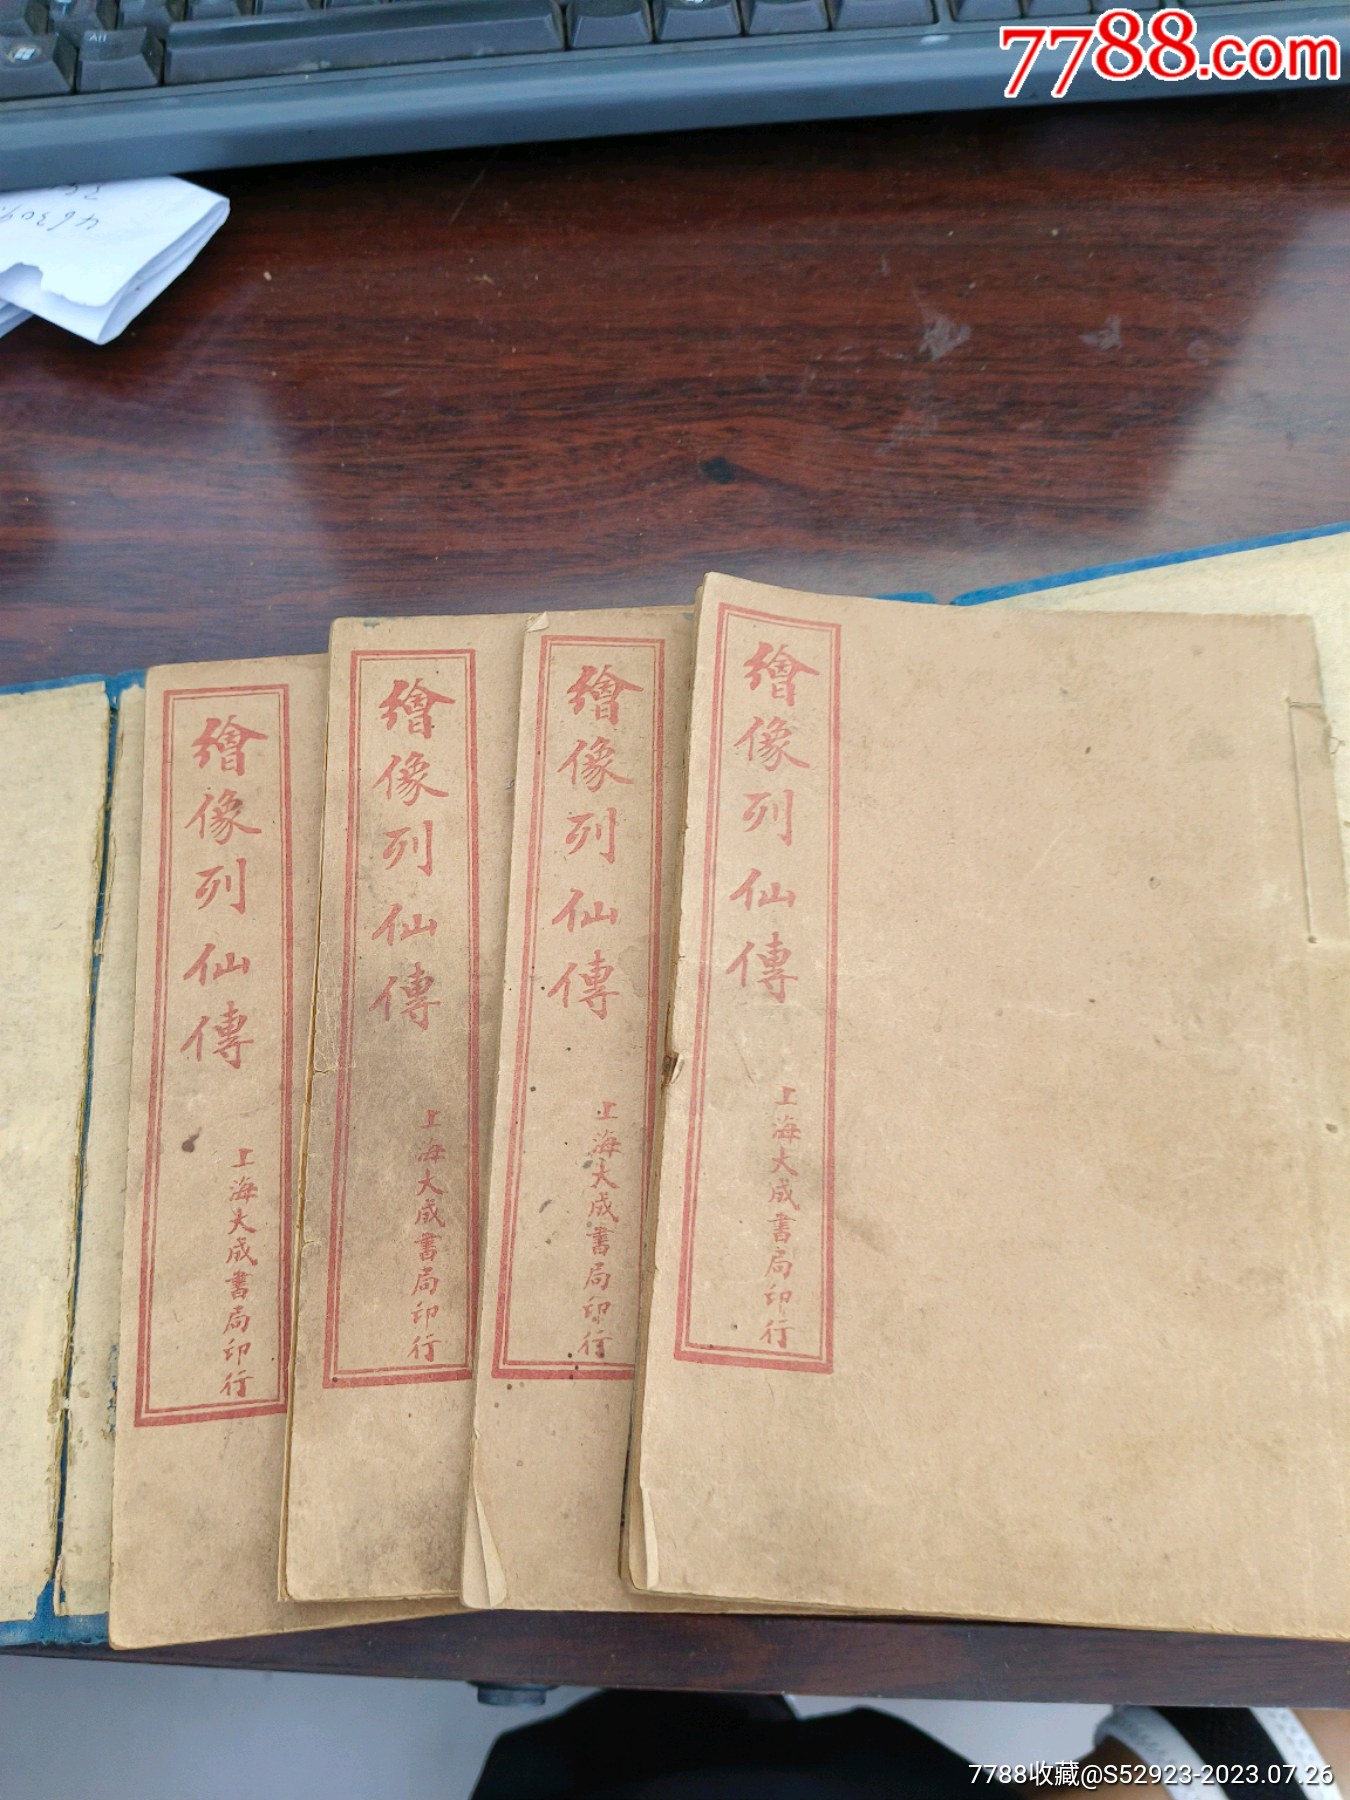 7788.com
Alt
46309
繪像列仙傳
上海大成書局印行
繪像列仙傳
上海大成書局印行
繪像列仙傳
上海大成書局印行
繪像列仙傳
上海大成書局印行
7788收藏@S52923-2023.07.26